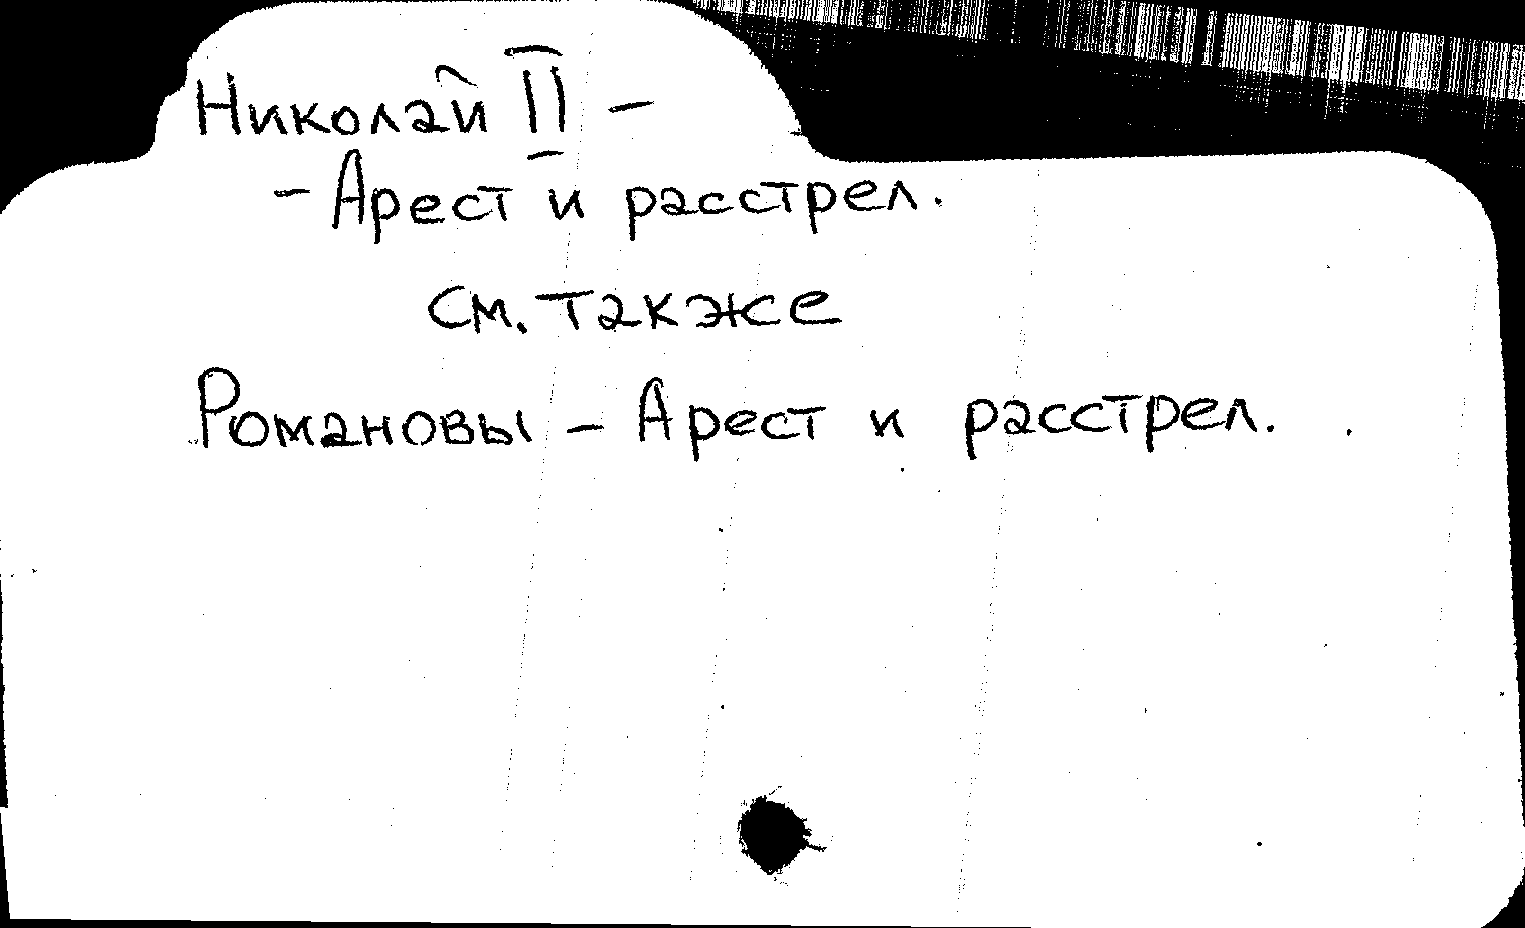 Николай II –
– Арест и расстрел.
см. также
Романовы – Арест и расстрел.